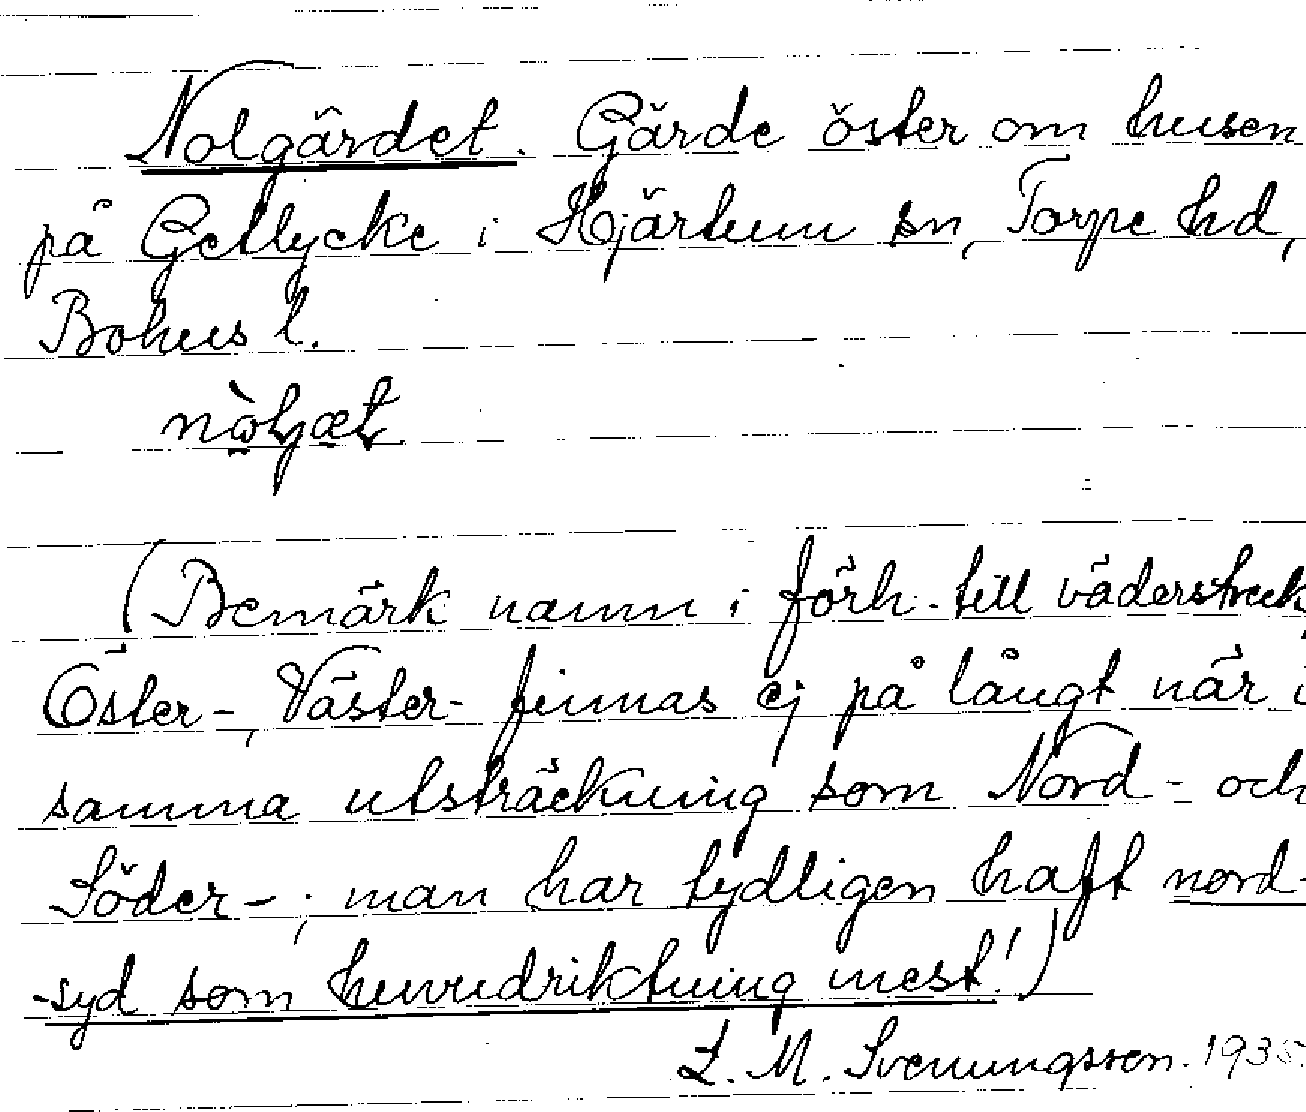 Nolgärdet. Gärde öster om husen
på Getlycke i Hjärtum sn, Torpe hd,
Bohus l.
(Bemärk namn i förh. till väderstreck,
Öster-, Väster- finnas ej på långt när i
samma utsträckning som Nord- och
Söder-; man har tydligen haft nord-
-syd som huvudriktning mest!)
L. M. Svenungsson. 1935.